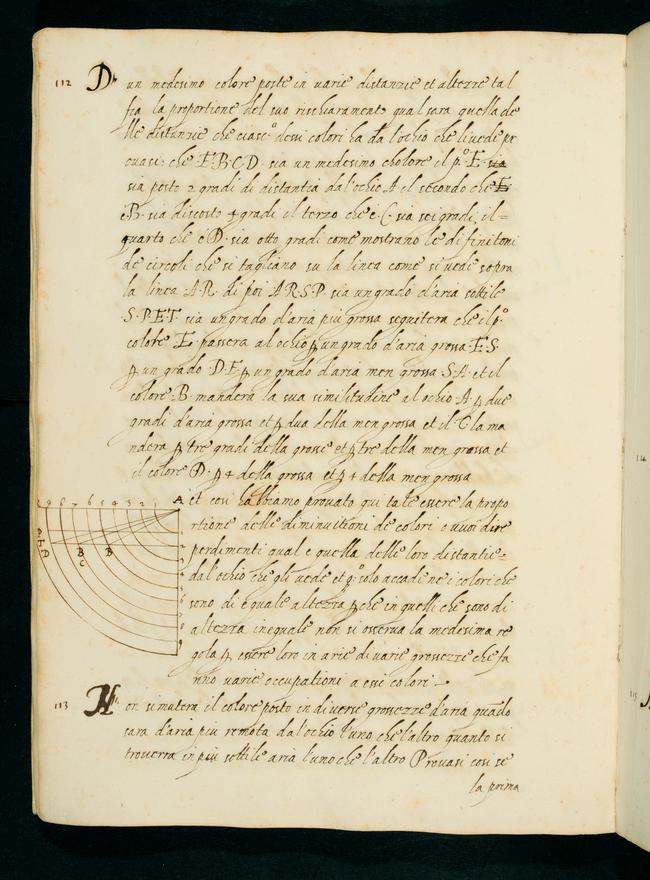 112 D' un medesimo colore poste in varie distanzie et altezze tal
fia la proportione del suo rischiaramento qual sara quella de
lle distanzie che ciasc.º dessi colori ha da l'ochio che li uede pr
ouasi: che E·B·C·D· sia un medesimo cholore il p.º E·
sia posto 2 gradi di distantia dal'ochio A il secondo che
è B· sia discosto 4 gradi il terzo che e· C· sia sei gradi, il=
quarto che è D· sia otto gradi come mostrano le difinitioni
de circoli che si tagliano su la linea come si uede sopra
la linea A·R· di poi A·R·S·P· sia un grado d'aria sottile
S·P·E·T· sia un grado d'aria più grossa seguitera che il p.º
colore E· passera al ochio ꝑ un grado d'aria grossa E·S·
ꝑ un grado D·E ꝑ un grado d'aria men grossa S·A· et il
colore B· mandera la sua similitudine al ochio A· ꝑ due
gradi d'aria grossa et ꝑ dua della men grossa et il C la ma
ndera ꝑ tre gradi della grosse et ꝑ tre della men grossa et
il colore D· ꝑ 4 della grossa et ꝑ 4 della men grossa
et cosi habbiamo provato qui tale essere la propo
rtione delle diminuitioni de colori o vuoi dire
perdimenti qual e quella delle loro distantie=
dal'ochio che gli uede et q.º solo accade ne i colori che
sono di equale altezza ꝑche in quelli che sono di
altezza inequale non si osserua la medesima re
gola ꝑ essere loro in arie di varie grossezze che fa
nno varie occupationi a essi colori·
9 8 7 6 5 4 3 2 1 A
B
B
C
D
113 Non si mutera il colore posto in diverse grossezze d'aria quādo
sara d'aria piu remota da l'ochio l'uno che l'altro quanto si
trouerra in piu sottile aria l'uno che l'altro Prouasi cosi se
la prima